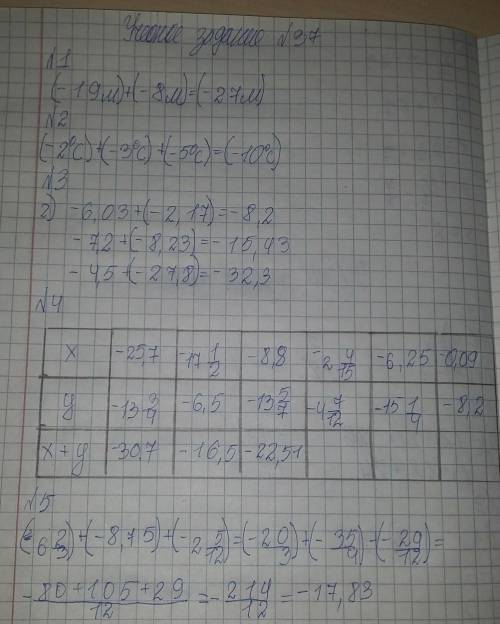 Учебное задание №37
№1
(-19м)+(-8м)=(-27м)
№2
(-2°C)+(-3°C)+(-5°C)=(-10°C)
№3
2) -6,03+(-2,17)=-8,2
-7,2+(-8,23)=-15,43
-4,5+(-27,8)=-32,3
№4
x -25,7 -17 1/2 -8,8 -2 4/15 -6,25 -0,09
y -13 3/4 -6,5 -13 5/7 -4 7/12 -15 1/4 -8,2
x+y -30,7 -16,5 -22,51
№5
(-6 2/3)+(-8,75)+(-2 5/12)=(-20/3)+(-35/4)+(-29/12)=
-(80+105+29)/12=-214/12=-17,83